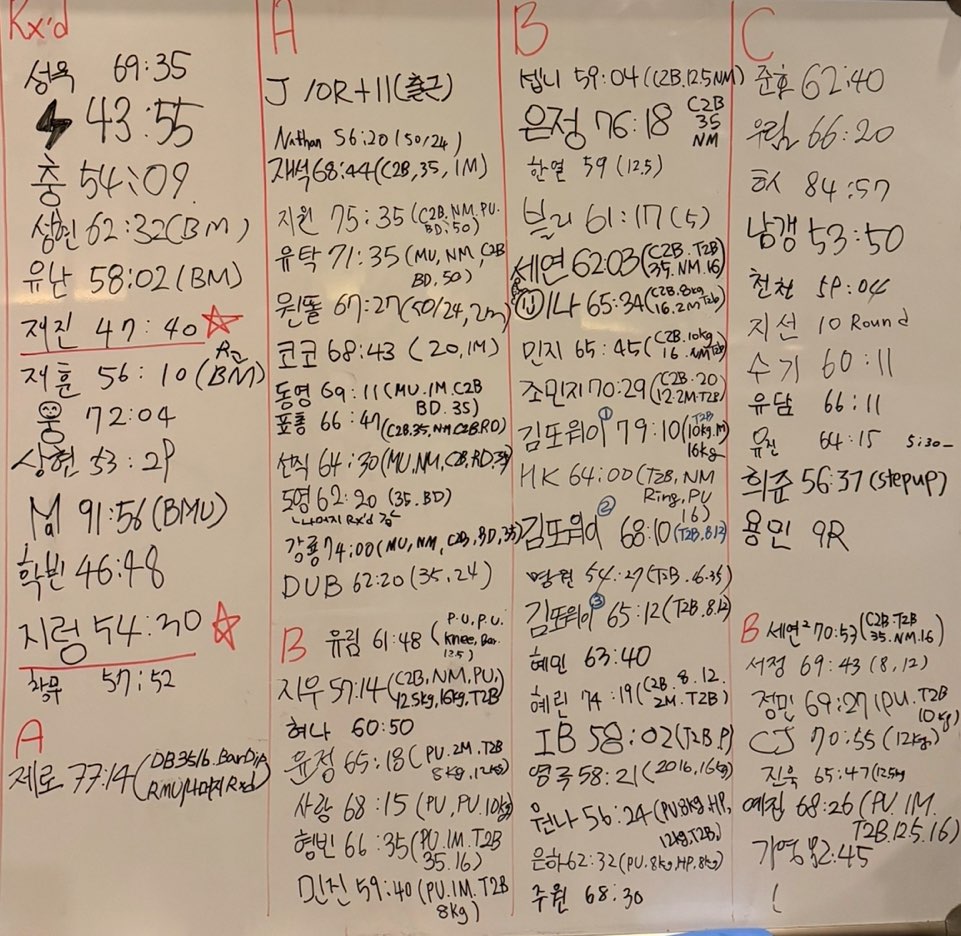 Rx'd
성욱 69:35
43:55
충 54:09
성현 62:32(BM)
유난 58:02(BM)
재진 47:40
재훈 56:10(BM)
웅 72:04
상현 53:29
91:56(BMU)
학빈 46:48
지렁 54:30
57:52
A
제로 77:14(DB35 16. Bar Dip
RMU 나머지 Rxd)
A
J 10R+11(출근)
Nathan 56:20(50/24)
재석 68:44(C2B, 35, 1M)
지원 75:35(C2B. NM. PU.
BD. 50)
유탁 71:35(MU, NM, C2B
BD, 50)
원똘 67:27(50/24, 2m)
코코 68:43 (20, 1M)
동영 69:11(MU. 1M. C2B
BD. 35)
포통 66:47(C2B. 35, NM. C2B. RD)
선직 64:30(MU, NM, C2B, RD, 35)
도영 62:20 (35. BD)
나머지 Rx'd
강룡 74:00(MU, NM, C2B, BD, 35)
DUB 62:20(35, 24)
B
유림 61:48 (P.U, P.U.
knee, Bar.
12.5)
지우 57:14(C2B, NM, PU,
12.5kg, 16kg, T2B)
혀나 60:50
윤정 65:18(PU. 2M. T2B
8kg, 12kg)
사랑 68:15 (PU, PU, 10kg)
형빈 66:35(PU. 1M. T2B
35. 16)
민진 59:40(PU. 1M. T2B
8kg)
B
쎕니 59:04(C2B. 12.5 NM)
은정 76:18 C2B
35
NM
한열 59 (12.5)
브리 61:17(5)
세연 62:03(C2B. T2B
35. NM. 16)
이나 65:34(C2B. 8kg
16. 2M T2b)
민지 65:45(C2B. 10kg
16. NM T2b)
조민지 70:29(C2B. 20
12. 2M. T2B)
김포워이 ① 79:10(T2B
10kg. M
16kg
HK 64:00(T2B, NM
Ring, PU
16)
김포워이 ② 68:10(T2B, 8. 12)
명현 54:27(T2B. 16. 35)
김포워이 ③ 65:12(T2B, 8. 12)
혜민 63:40
혜린 74:19(C2B. 8. 12.
2M. T2B)
IB 58:02(T2B. P)
영국 58:21(20 16, 16kg)
원나 56:24(PU 8kg, HP,
12kg, T2B,)
은하 62:32(PU. 8kg, HP. 8kg)
주원 68:30
C
준호 62:40
우림 66:20
84:57
남갱 53:50
천천 59:04
지선 10 Round
수기 60:11
유담 66:11
유진 64:15 5:30-
희준 56:37(step up)
용민 9R
B
세연² 70:53(C2B. T2B
35. NM. 16)
서정 69:43(8, 12)
정민 69:27(PU. T2B
10kg)
CJ 70:55(12kg)
진욱 65:47(12.5kg
예진 68:26(PU. 1M.
T2B. 12.5. 16)
가영 :45